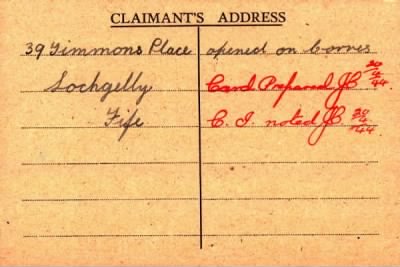 CLAIMANT'S ADDRESS
39 Timmons Place
Lochgelly
Fife
opened on Corres
Card Prepared JC 20/4/44
C. I. noted JC 20/4/44